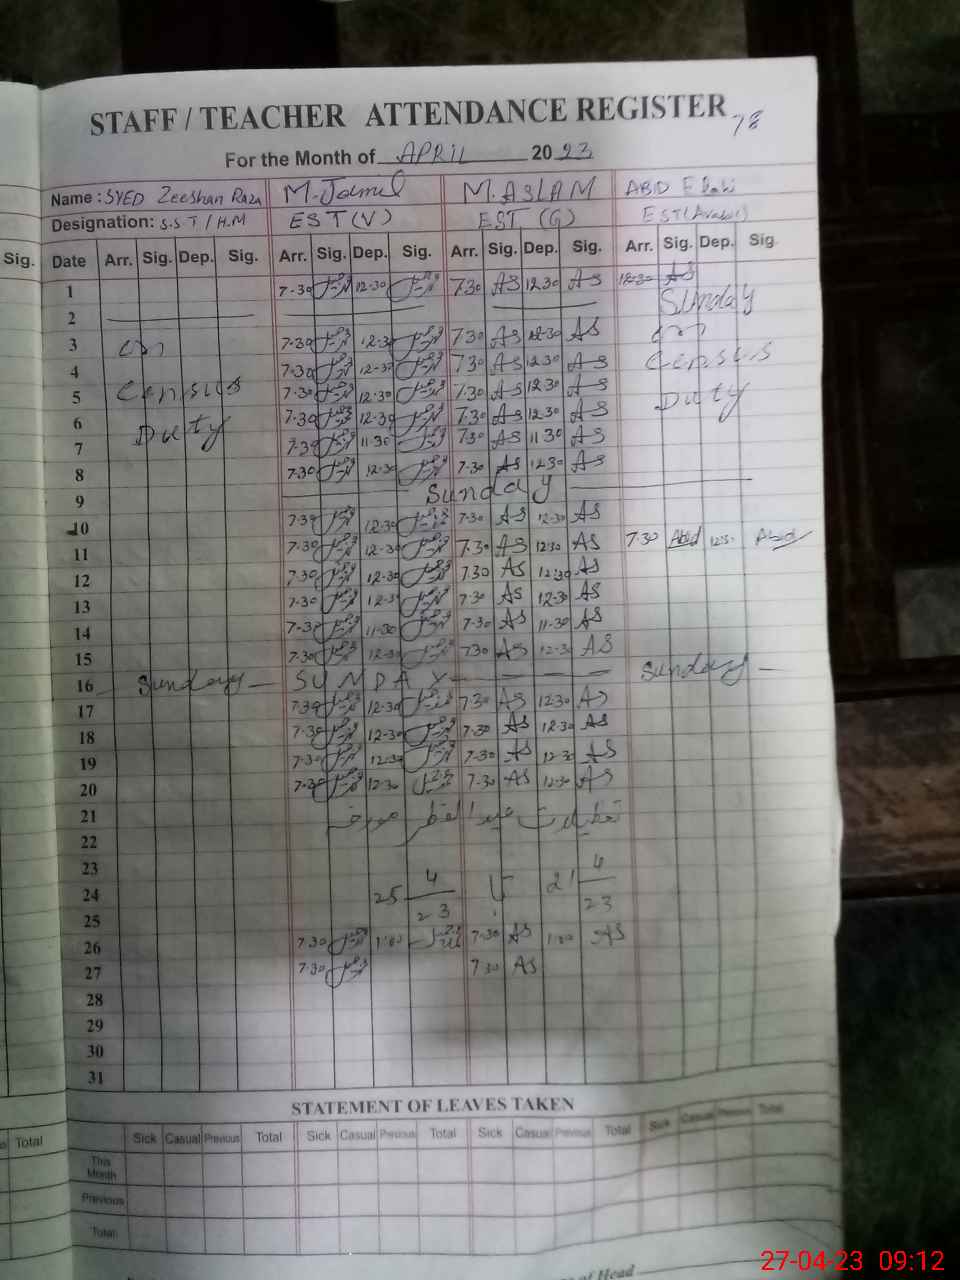 STAFF / TEACHER ATTENDANCE REGISTER 78
For the Month of APRIL 2023
Name : SYED Zeeshan Raza M. Jamil M. ASLAM ABD
Designation: S.S.T / H.M EST (V) EST (G) EST (Arabic)
Sig. Date Arr. Sig. Dep. Sig. Arr. Sig. Dep. Sig. Arr. Sig. Dep. Sig. Arr. Sig. Dep. Sig.
1 7-30 12-30 7.30 AS 12.30 AS 12-30 AS
2 Sunday
3 on 7-30 12-30 7.30 AS 12-30 AS on
4 7-30 12-30 7.30 AS 12.30 AS Census
5 Census 7-30 12-30 7.30 AS 12.30 AS
6 7-30 12-30 7.30 AS 12.30 AS Duty
7 Duty 7-30 11-30 7.30 AS 11.30 AS
8 7-30 12-30 7.30 AS 12.30 AS
9 Sunday
10 7-30 12-30 7-30 AS 12-30 AS
11 7-30 12-30 7.30 AS 12.30 AS 7.30 Abd 12.30 Abd
12 7-30 12-30 7.30 AS 12.30 AS
13 7-30 12-30 7.30 AS 12-30 AS
14 7-30 11-30 7-30 AS 11-30 AS
15 7-30 12-30 7.30 AS 12-30 AS
16 Sunday SUNDAY Sunday
17 7-30 12-30 7.30 AS 12.30 AS
18 7-30 12-30 7.30 AS 12-30 AS
19 7-30 12-30 7-30 AS 12-30 AS
20 7-30 12-30 7-30 AS 12-30 AS
21 تعطیلات عیدالفطر مورخہ
22
23
24 21 4/23 تا 25 4/23
25
26 7.30 1:00 7-30 AS 1:00 AS
27 7-30 7.30 AS
28
29
30
31
STATEMENT OF LEAVES TAKEN
Total Sick Casual Previous Total Sick Casual Previous Total Sick Casual Previous Total Sick Casual Previous Total
This Month
Previous
Total:
of Head
27-04-23 09:12